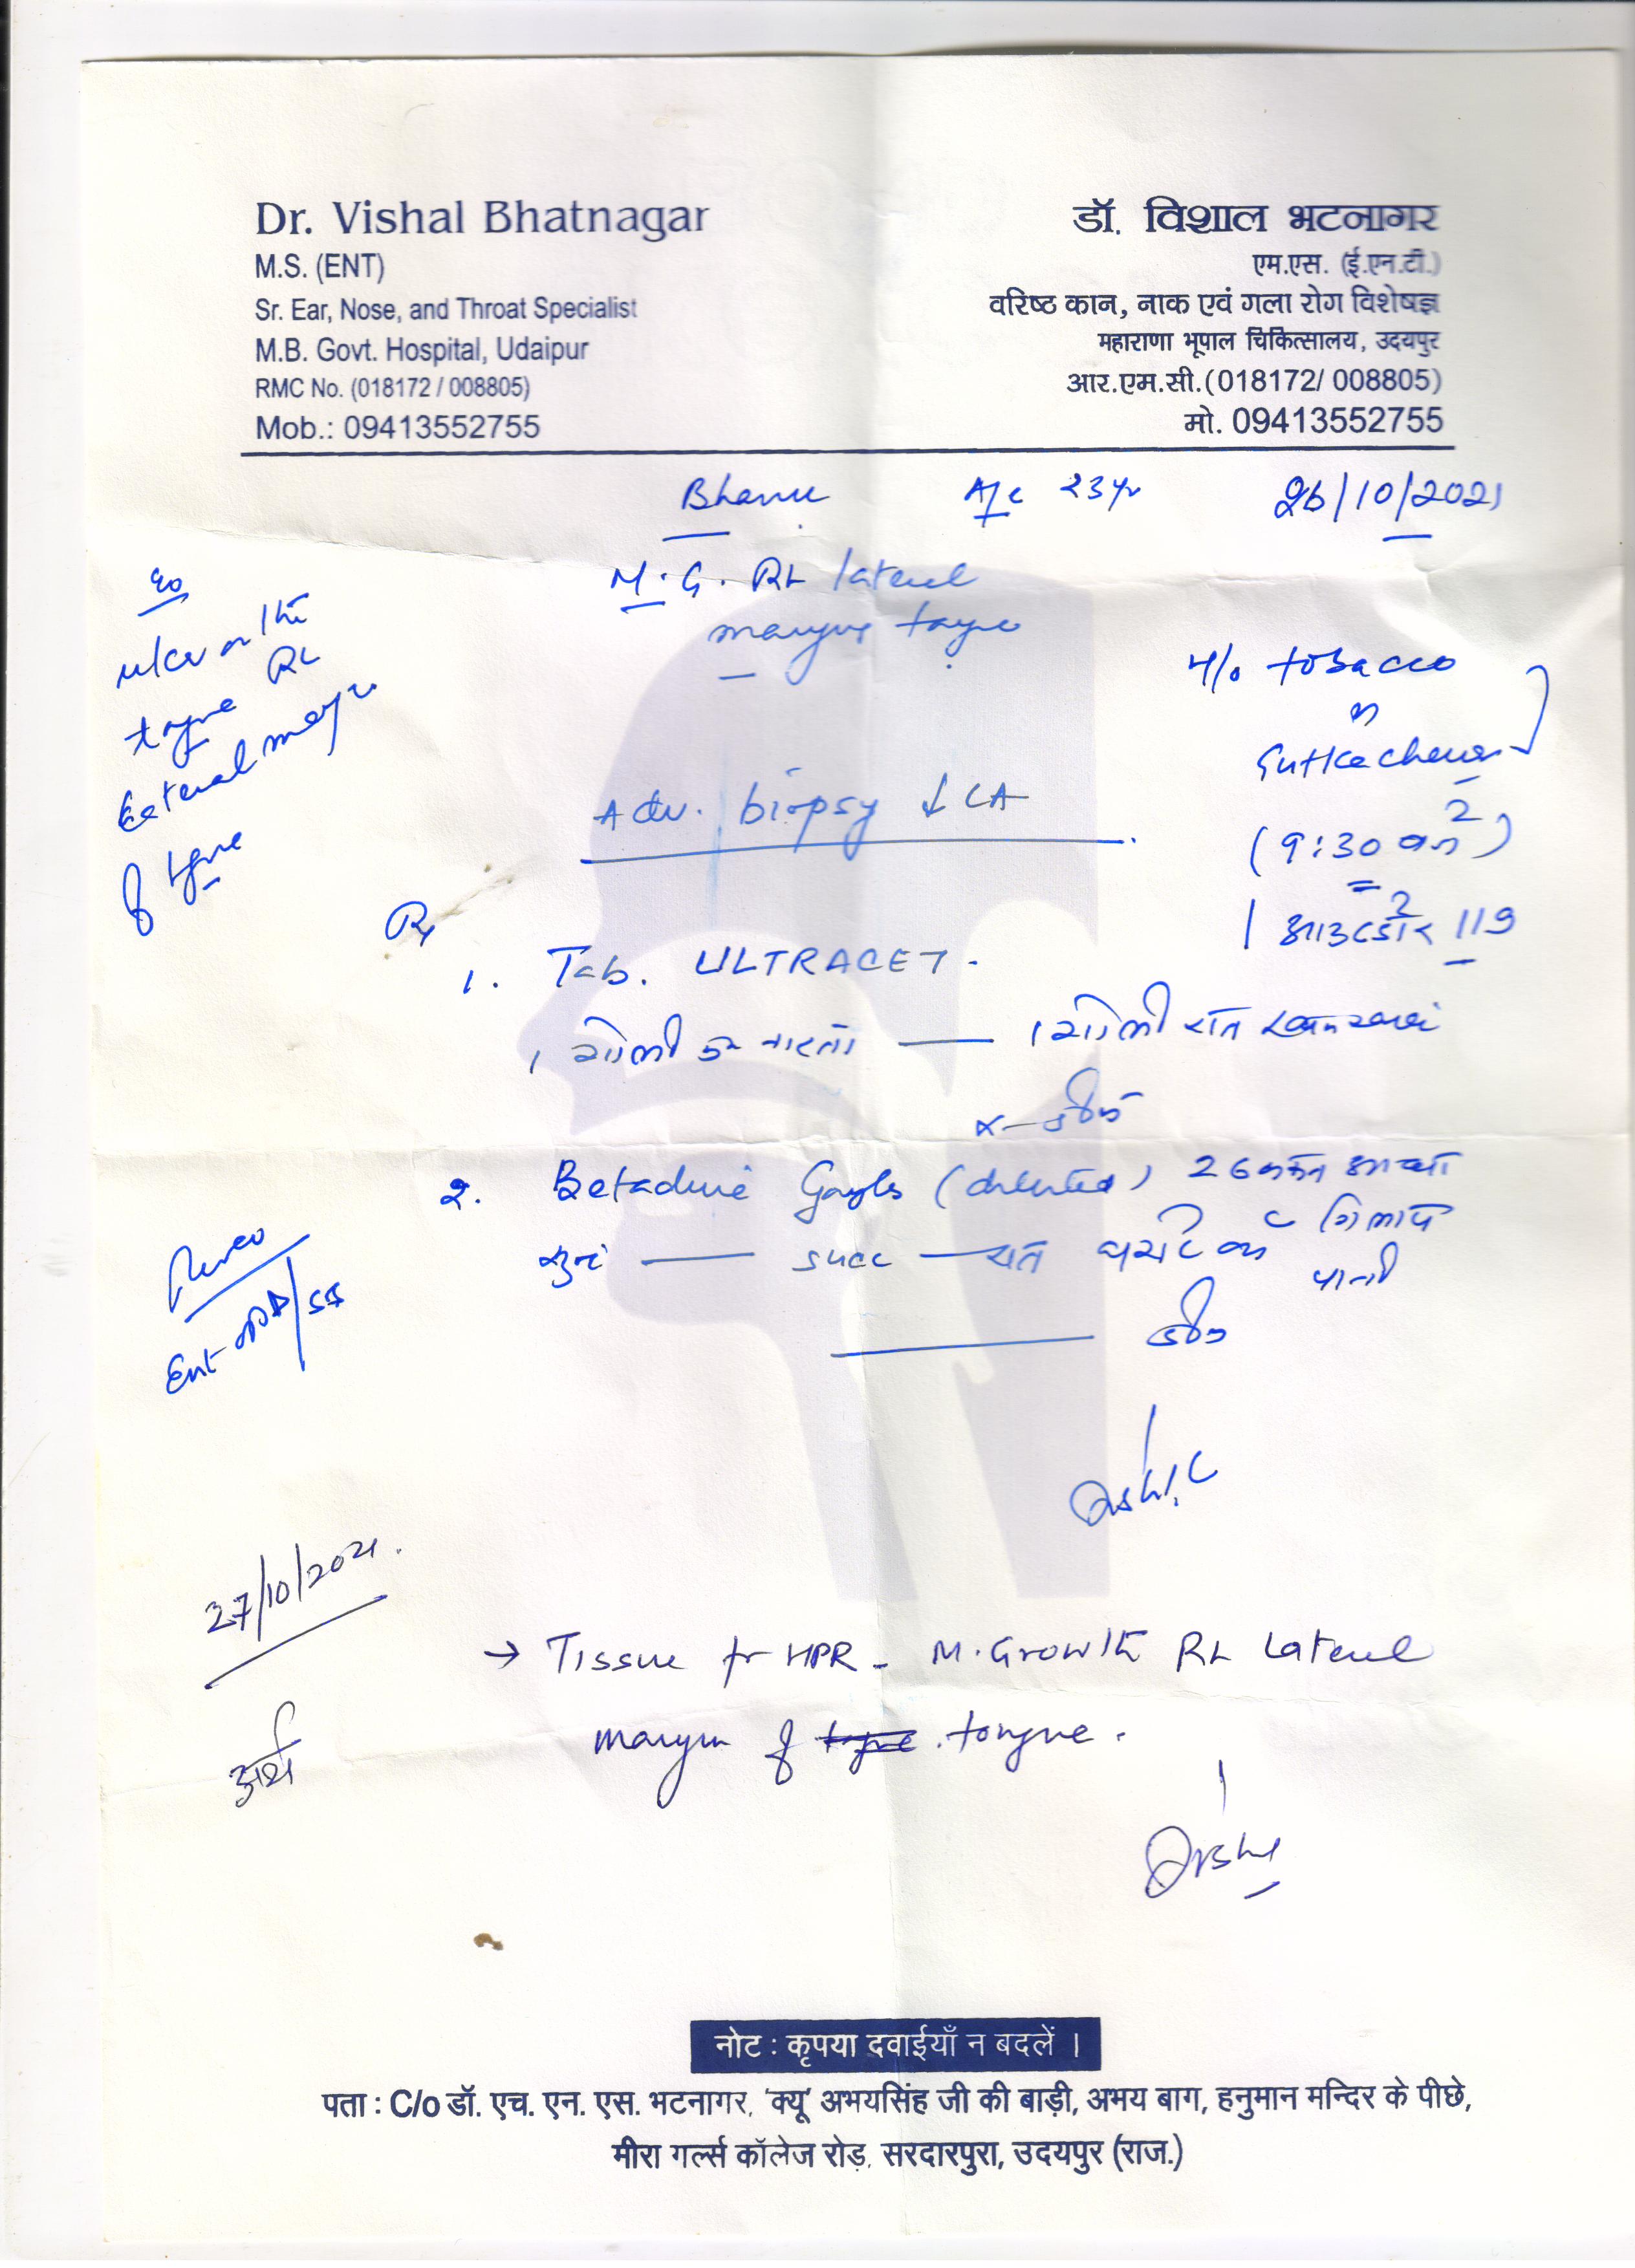 Dr. Vishal Bhatnagar
M.S. (ENT)
Sr. Ear, Nose, and Throat Specialist
M.B. Govt. Hospital, Udaipur
RMC No. (018172 / 008805)
Mob.: 09413552755
डॉ. विशाल भटनागर
एम.एस. (ई.एन.टी.)
वरिष्ठ कान, नाक एवं गला रोग विशेषज्ञ
महाराणा भूपाल चिकित्सालय, उदयपुर
आर.एम.सी.(018172/ 008805)
मो. 09413552755
Bhanu Age 23yr 26/10/2021
M.G. RL lateral
margin tongue
ulcer on the
tongue RL
lateral margin
of tongue
H/o tobacco
Gutka chewer
(9:30
आउटडोर 119
Adv. biopsy ↓ LA
Rx
1. Tab. ULTRACET.
1 गोली 1 गोली रात
2. Betadine Gargles (diluted) 2 ढक्कन आधा
गिलास
पानी
Ent OPD
27/10/2021.
→ Tissue for HPR - M. Growth RL Lateral
margin of tongue.
नोट : कृपया दवाईयाँ न बदलें ।
पता : C/o डॉ. एच. एन. एस. भटनागर, 'क्यू' अभयसिंह जी की बाड़ी, अभय बाग, हनुमान मन्दिर के पीछे,
मीरा गर्ल्स कॉलेज रोड़, सरदारपुरा, उदयपुर (राज.)